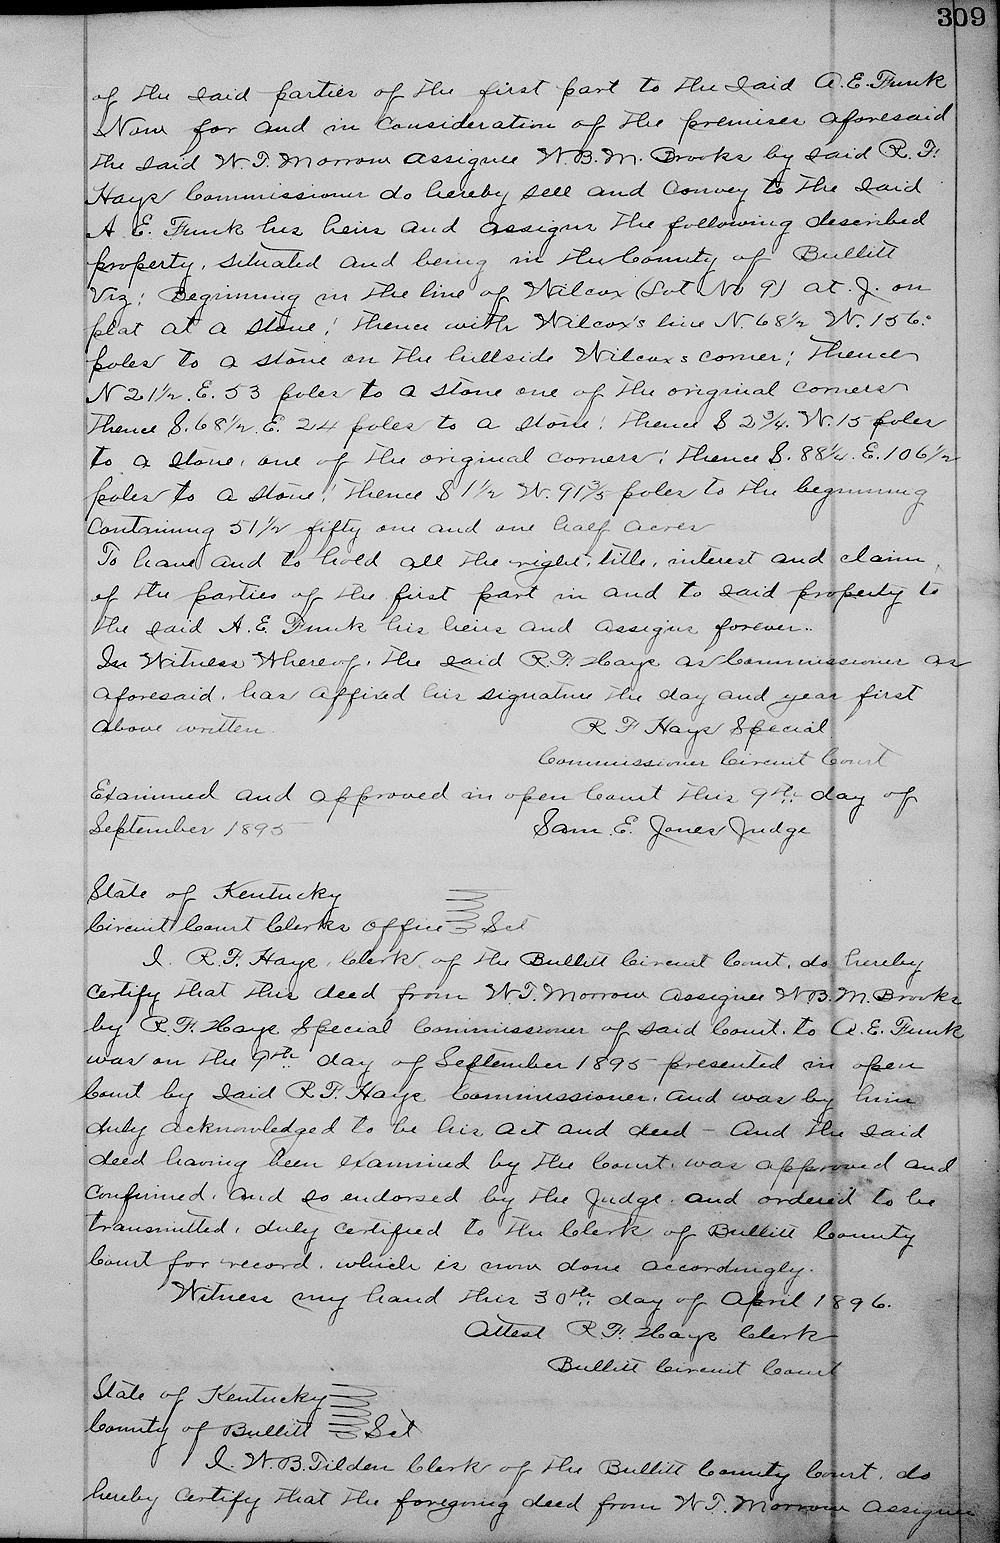 309
of the said parties of the first part to the said A. E. Funk
Now for and in consideration of the premises aforesaid
the said W. T. Morrow assignee W. B. M. Brooks by said R. F.
Hays Commissioner do hereby sell and convey to the said
A. E. Funk his heirs and assigns the following described
property, situated and being in the County of Bullitt
Viz: Beginning in the line of Wilcox (Lot No 9) at J. on
plat at a stone; thence with Wilcox's line N. 68 1/2 W. 156.
poles to a stone on the hillside Wilcox's corner; thence
N 21 1/2. E. 53 poles to a stone one of the original corners
thence S. 68 1/2. E. 24 poles to a stone; thence S 2 3/4. W. 15 poles
to a stone, one of the original corners; thence S. 88 1/4. E. 106 1/2
poles to a stone; thence S 1 1/2 W. 91 3/5 poles to the beginning
Containing 51 1/2 fifty one and one half acres
To have and to hold all the right, title, interest and claim
of the parties of the first part in and to said property to
the said A. E. Funk his heirs and assigns forever.
In Witness Whereof, the said R. F. Hays as Commissioner as
aforesaid, has affixed his signature the day and year first
above written. R F Hays Special
Commissioner Circuit Court
Examined and approved in open Court this 9th day of
September 1895 Sam. E. Jones Judge
State of Kentucky
Circuit Court Clerks Office Sct
I. R. F. Hays, Clerk of the Bullitt Circuit Court, do hereby
certify that this deed from W. T. Morrow assignee W. B. M. Brooks
by R. F. Hays Special Commissioner of said Court, to A. E. Funk
was on the 9th day of September 1895 presented in open
Court by said R. F. Hays Commissioner, and was by him
duly acknowledged to be his act and deed - And the said
deed having been examined by the Court, was approved and
confirmed, and so endorsed by the Judge, and ordered to be
transmitted, duly certified to the Clerk of Bullitt County
Court for record, which is now done accordingly.
Witness my hand this 30th day of April 1896.
Attest R. F. Hays Clerk
Bullitt Circuit Court
State of Kentucky
County of Bullitt Sct
I. W. B. Tilden Clerk of the Bullitt County Court, do
hereby certify that the foregoing deed from W. T. Morrow assignee